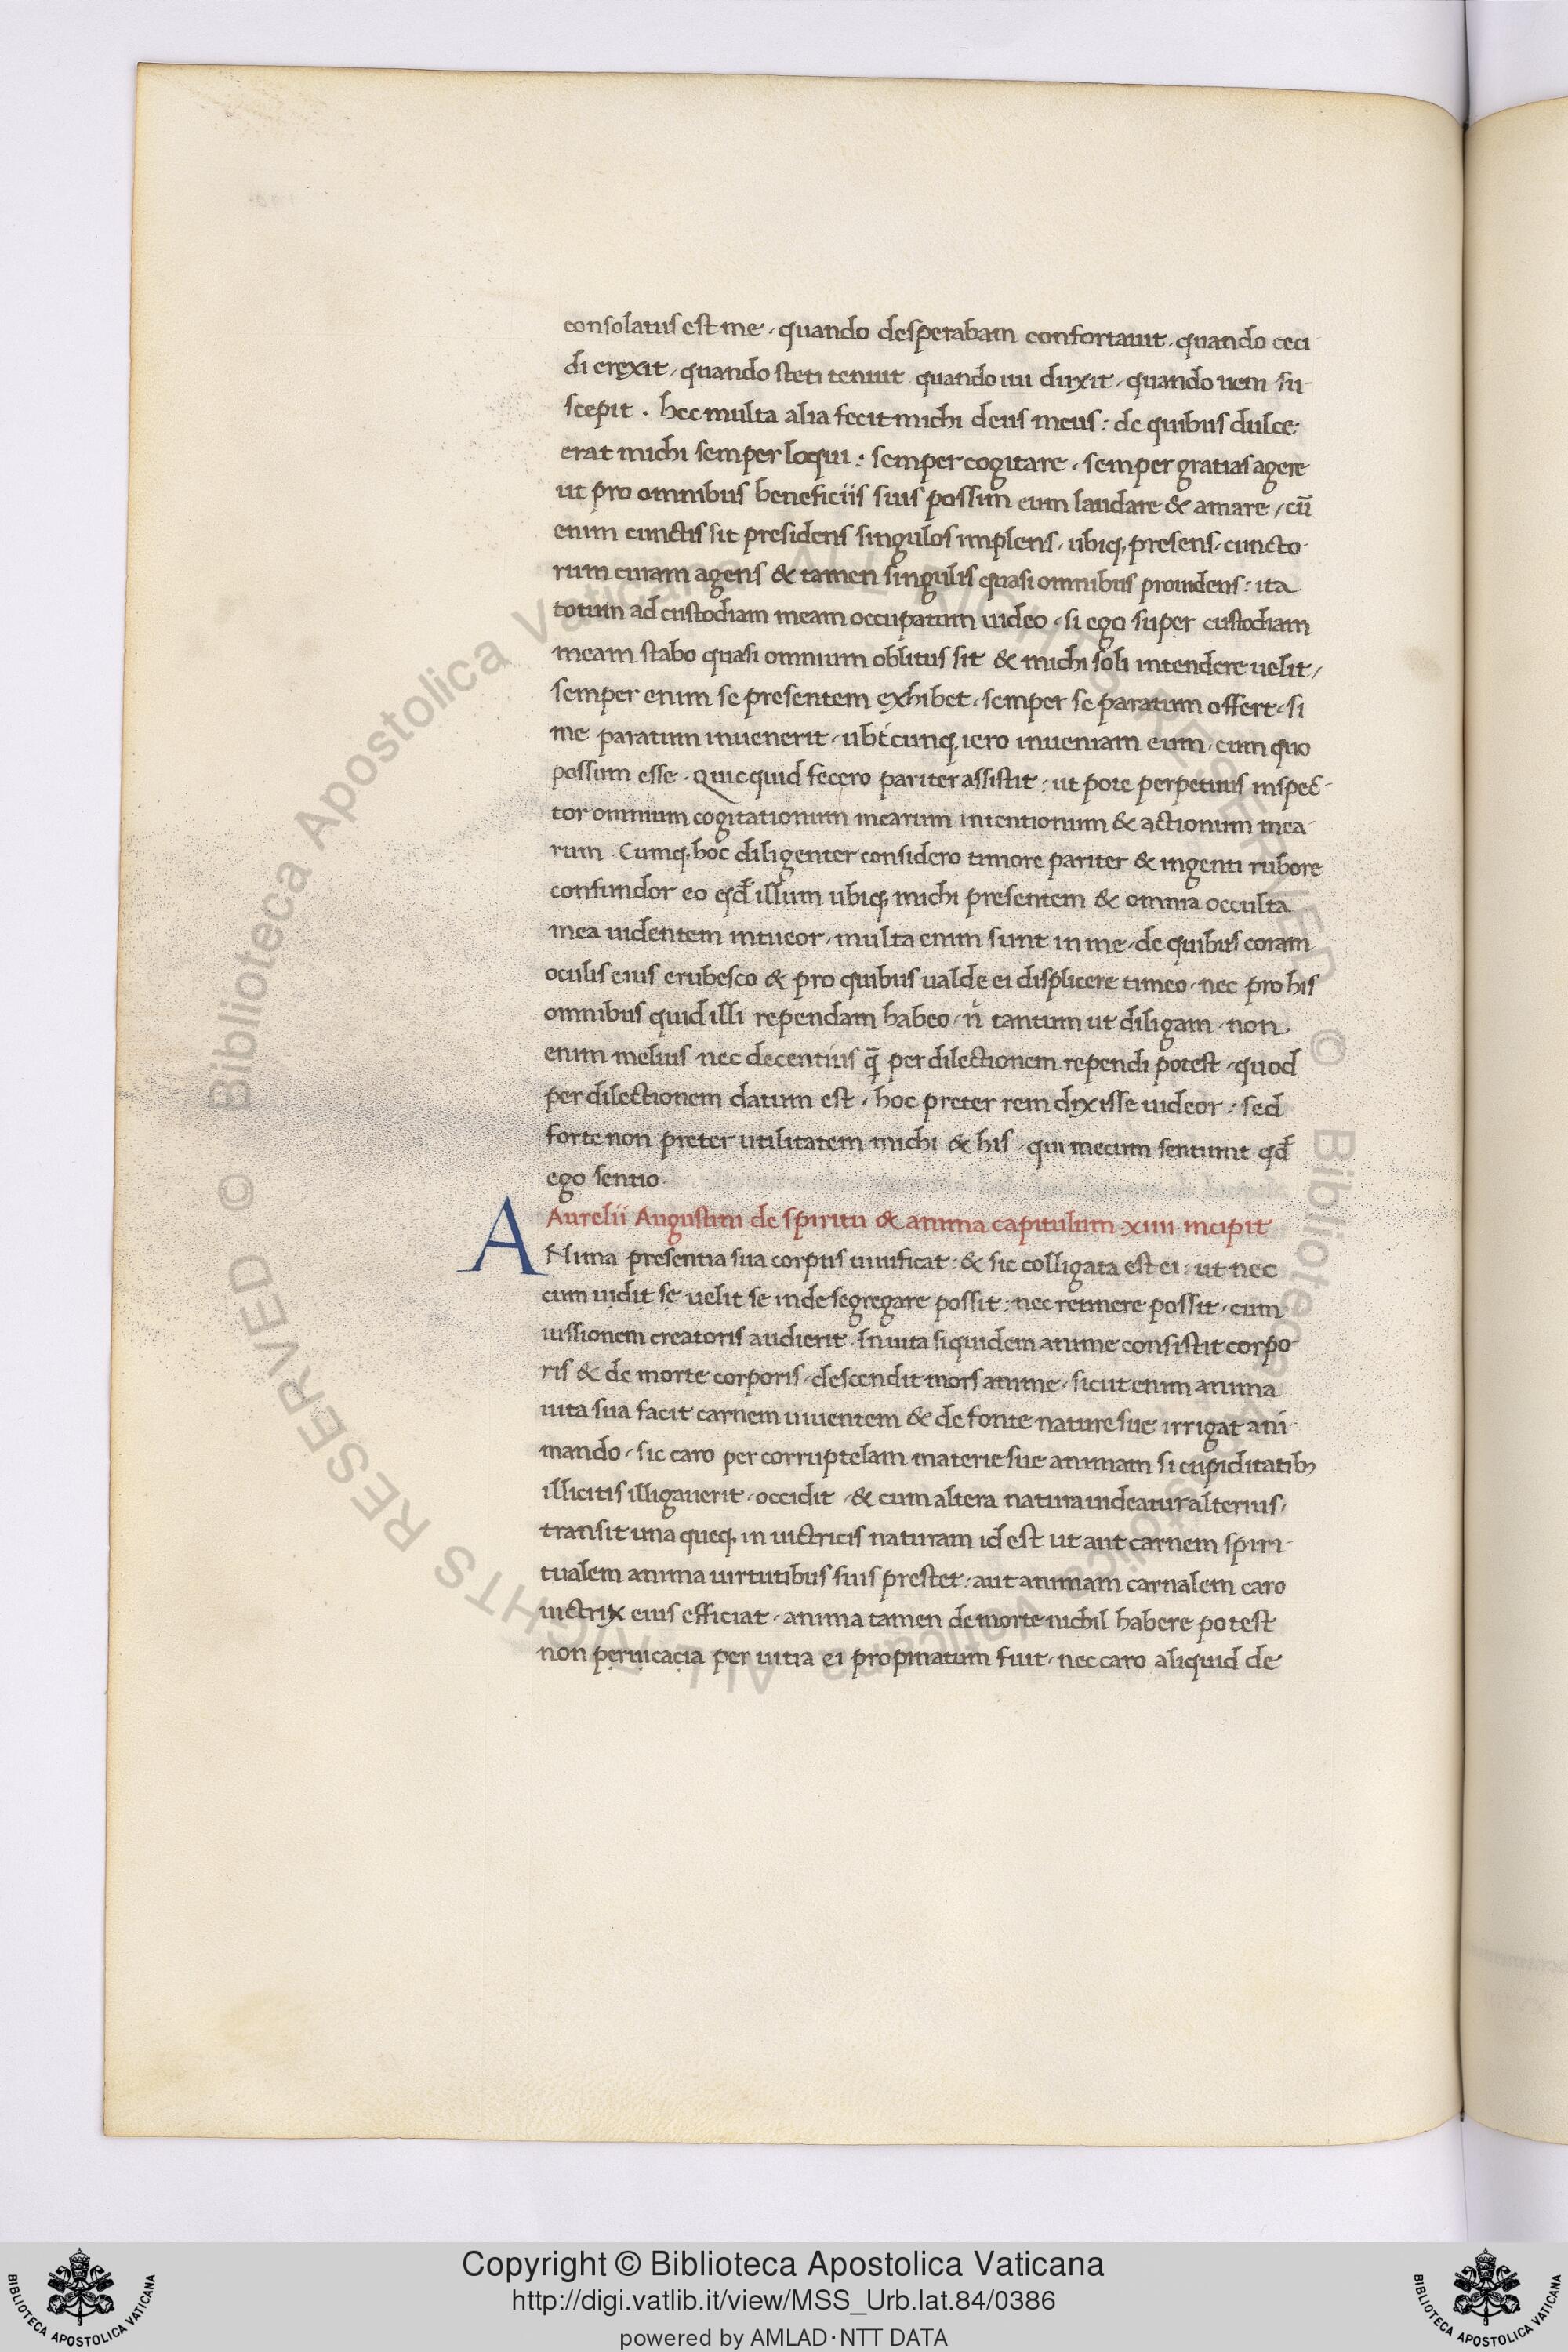 consolatus est me, quando desperabam confortauit, quando ceci-
di erexit, quando steti tenuit quando iui duxit, quando ueni su-
scepit. hec multa alia fecit michi deus meus: de quibus dulce
erat michi semper loqui: semper cogitare, semper gratias agere
ut pro omnibus beneficiis suis possim eum laudare & amare, cū
enim cunctis sit presidens singulos implens, ubiq; presens, cuncto-
rum curam agens & tamen singulis quasi omnibus prouidens: ita
totum ad custodiam meam occupatum uideo, si ego super custodiam
meam stabo quasi omnium oblitus sit & michi soli intendere uelit,
semper enim se presentem exhibet, semper se paratum offert, si
me paratum inuenerit, ubicunq; iero inueniam eum, cum quo
possum esse. Quicquid fecero pariter assistit: ut pote perpetuus inspec-
tor omnium cogitationum mearum intentionum & actionum mea-
rum. Cumq; hoc diligenter considero timore pariter & ingenti rubore
confundor eo qđ illum ubiq; michi presentem & omnia occulta
mea uidentem intueor, multa enim sunt in me, de quibus coram
oculis eius erubesco & pro quibus ualde ei displicere timeo, nec pro his
omnibus quid illi rependam habeo, n̊ tantum ut diligam, non
enim melius nec decentius q̄ per dilectionem rependi potest, quod
per dilectionem datum est, hoc preter rem dixisse uideor: sed
forte non preter utilitatem michi & his, qui mecum sentiunt qđ
ego sentio.
Aurelii Augustini de spiritu & anima capitulum .xiiii. incipit
ANima presentia sua corpus uiuificat: & sic colligata est ei: ut nec
cum uidit se uelit se inde segregare possit: nec retinere possit, cum
iussionem creatoris audierit. In uita siquidem anime consistit corpo-
ris & de morte corporis, descendit mors anime, sicut enim anima
uita sua facit carnem uiuentem & de fonte nature sue irrigat ani-
mando, sic caro per corruptelam materie sue animam si cupiditatib;
illicitis illigauerit, occidit, & cum altera natura uideatur alterius,
transit una queq; in uictricis naturam id est ut aut carnem spiri-
tualem anima uirtutibus suis prestet: aut animam carnalem caro
uictrix eius efficiat, anima tamen de morte nichil habere potest
non peruicacia per uitia ei propinatum fuit, nec caro aliquid de
Copyright © Biblioteca Apostolica Vaticana
http://digi.vatlib.it/view/MSS_Urb.lat.84/0386
powered by AMLAD·NTT DATA
BIBLIOTECA APOSTOLICA VATICANA
BIBLIOTECA APOSTOLICA VATICANA
© Biblioteca Apostolica Vaticana ALL RIGHTS RESERVED
© Biblioteca Apostolica Vaticana ALL RIGHTS RESERVED